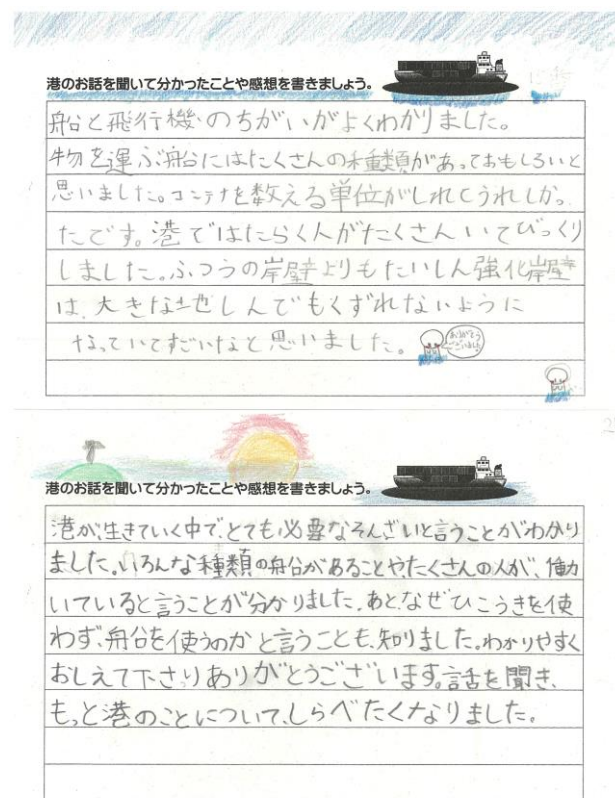 港のお話を聞いて分かったことや感想を書きましょう。
船と飛行機のちがいがよくわかりました。
物を運ぶ船にはたくさんの種類があっておもしろいと
思いました。コンテナを数える単位がしれてうれしかっ
たです。港ではたらく人がたくさんいてびっくり
しました。ふつうの岸壁よりもたいしん強化岸壁
は、大きな地しんでもくずれないように
なっていてすごいなと思いました。
ありがとう
ございました
港のお話を聞いて分かったことや感想を書きましょう。
港が、生きていく中で、とても必要なそんざいと言うことがわかり
ました。いろんな種類の船があることやたくさんの人が、働
いていると言うことが分かりました。あと、なぜひこうきを使
わず、船を使うのかと言うことも、知りました。わかりやすく
おしえて下さりありがとうございます。話を聞き、
もっと港のことについて、しらべたくなりました。